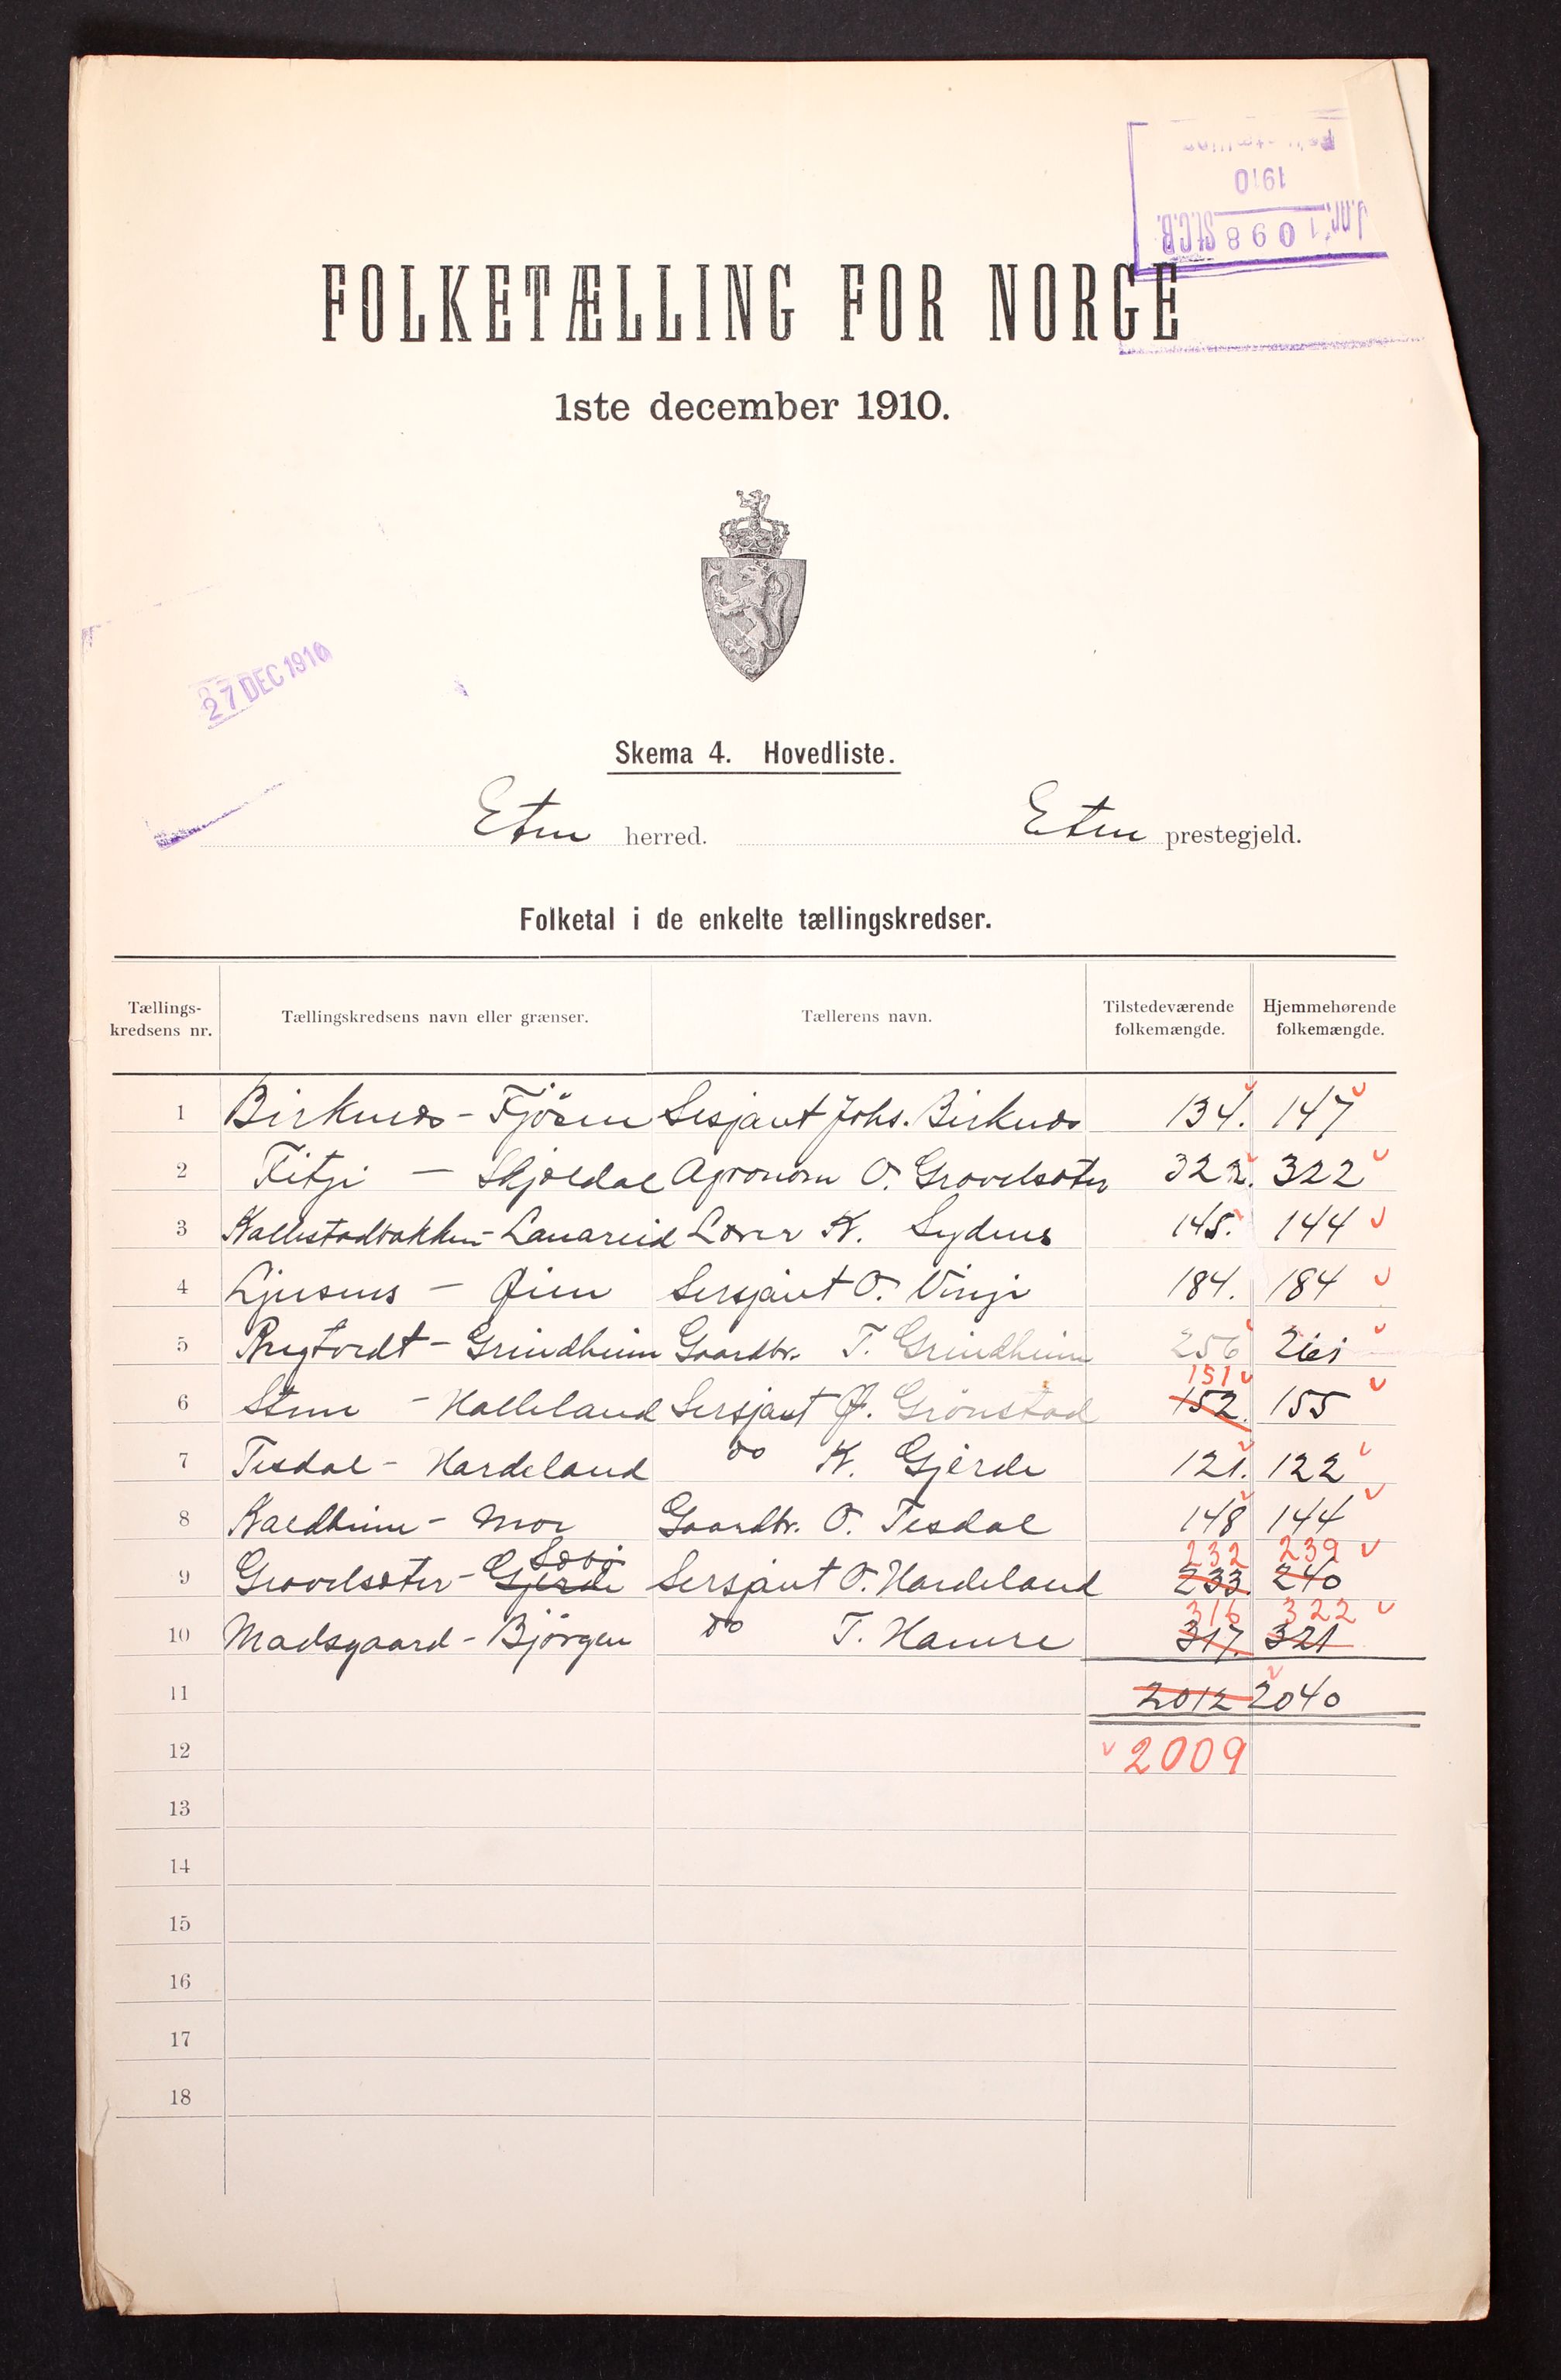 Folketælling
1910
J.nr. 1098 St.C.B.
FOLKETÆLLING FOR NORGE
1ste december 1910.
27 DEC 1910
Skema 4. Hovedliste.
Etne herred. Etne prestegjeld.
Folketal i de enkelte tællingskredser.
Tællings-kredsens nr. Tællingskredsens navn eller grænser. Tællerens navn. Tilstedeværende folkemængde. Hjemmehørende folkemængde.
1 Birknes - Fjösne Sersjant Johs. Birknes 134. 147
2 Fitje - Skjoldal Agronom O. Gravelsæter 322. 322
3 Kallestadbakken - Lanareid Lærer K. Sydnes 145. 144
4 Ljusnes - Øien Sersjant O. Vinje 184. 184
5 Rygtvedt - Grindheim Gaardbr. T. Grindheim 256 261
151
6 Stene - Halleland Sersjant Ø. Grönstad 152. 155
7 Tesdal - Hardeland do K. Gjerde 121. 122
8 Kaldheim - Moe Gaardbr. O. Tesdal 148 144
Sæbö 232 239
9 Gravelsæter - Gjerde Sersjant O. Hardeland 233. 240
316 322
10 Madsgaard - Björgen do T. Hamre 317. 321
11 2012 2040
12 2009
13
14
15
16
17
18